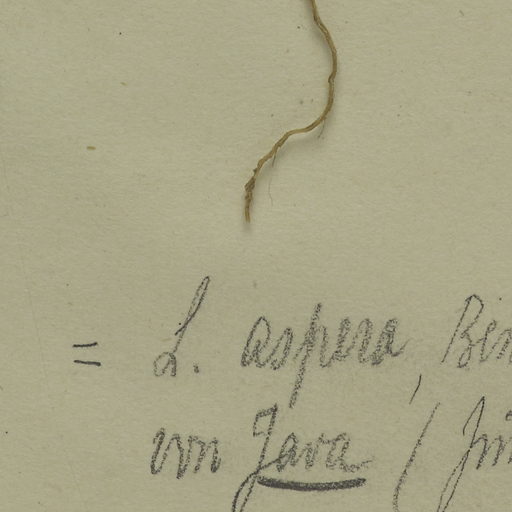 = L. aspera, Ben
von Java (